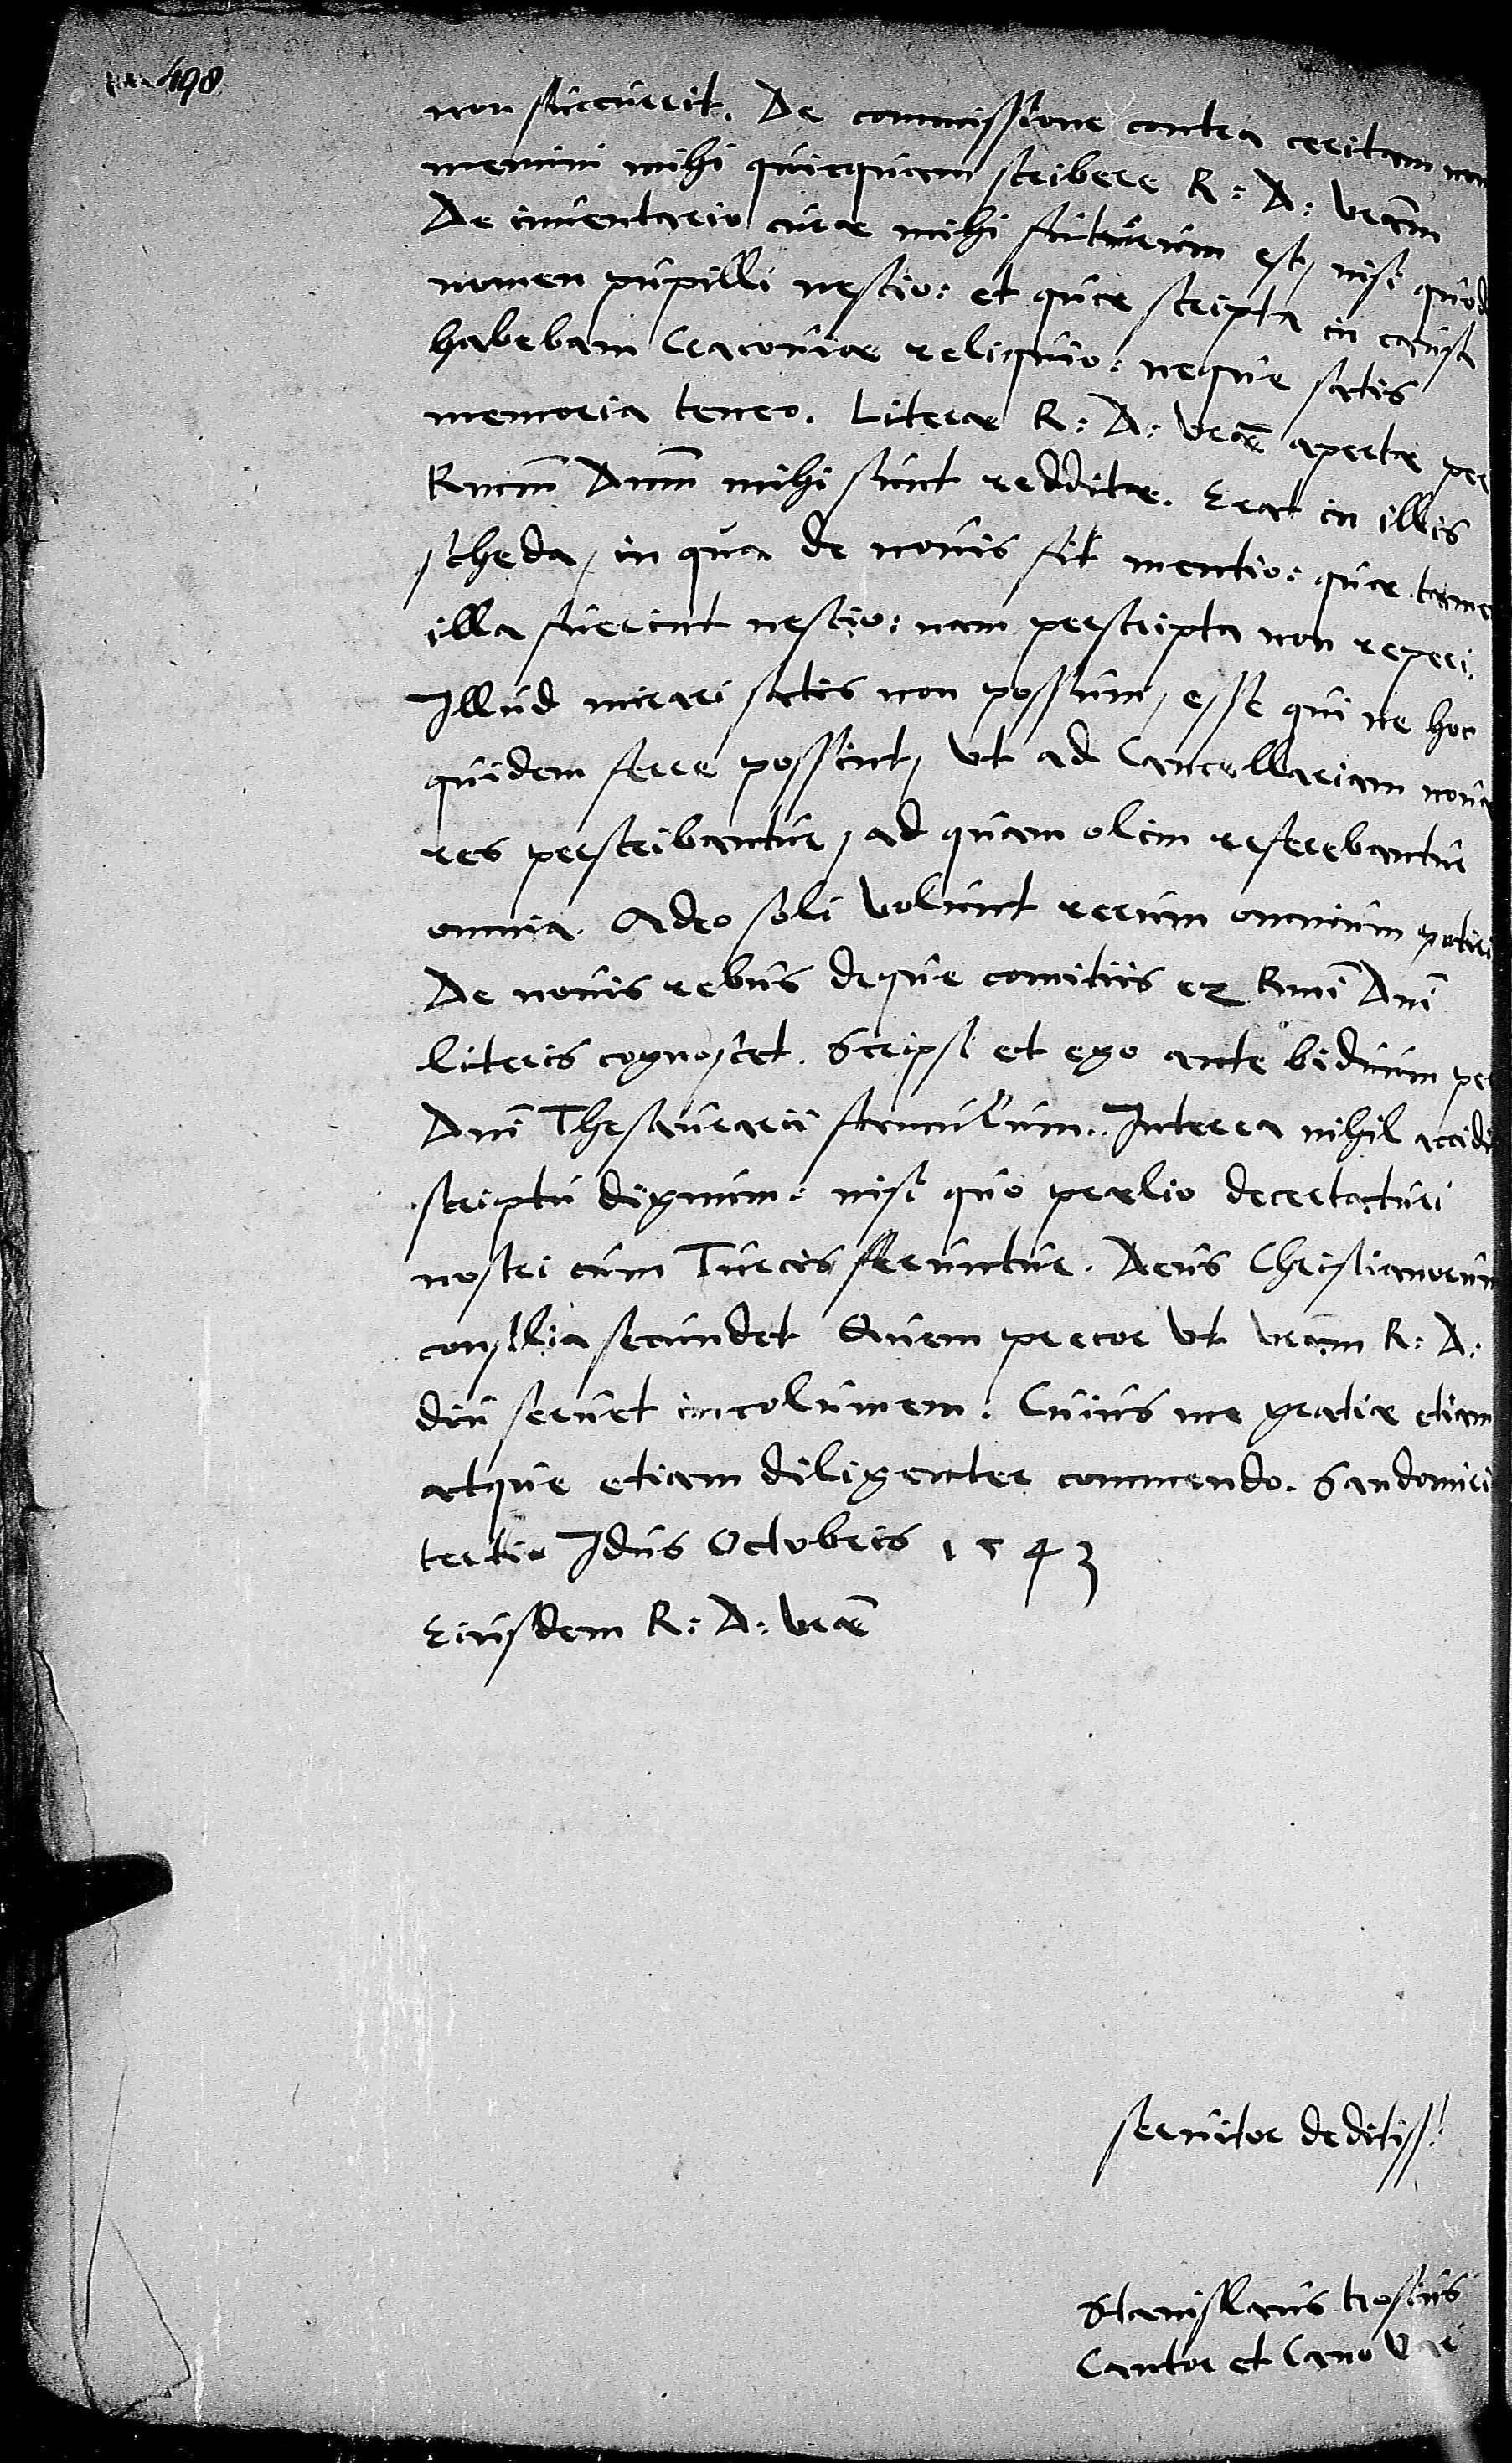 498
non succurrit. De commissione contra ceritam non
memini mihi quicquam scribere R: D: vram̄
De inventario curæ mihi futurum est, nisi quod
nomen pupilli nescio: et quæ scripta in causa
habebam Cracoviæ reliquio: neque satis
memoria teneo. Literæ R: D: vrǣ apertæ per
Rmum̄ Dnum̄ mihi sunt redditæ. Erat in illis
scheda, in qua de novis fit mentio: quæ tame
illa fuerint nescio: nam perscripta non reperi.
Illud mirari satis non possum, esse qui ne hoc
quidem ferre possint, ut ad Cancellariam novæ
res perscribantur, ad quam olim referebantur
omnia. Adeo soli volunt rerum omnium potiri
De novis rebus deque comitiis ex Rmī Dnī
literis cognoscet. Scripsi et ego ante biduum per
Dnī Thesaurarii famulum. Interea nihil accidi
scriptu dignum: nisi quo prælio decertaturi
nostri cum Turcis feruntur. Deus Christianorum
consilia secundet Quem precor ut vram̄ R: D:
diu servet incolumem. Cuius me gratiæ etiam
atque etiam diligenter commendo. Sandomiri
tertio Idus Octobris 1543
Eiusdem R: D: vrǣ
Servitor deditiss:
Stanislaus Hosius
Cantor et Cano